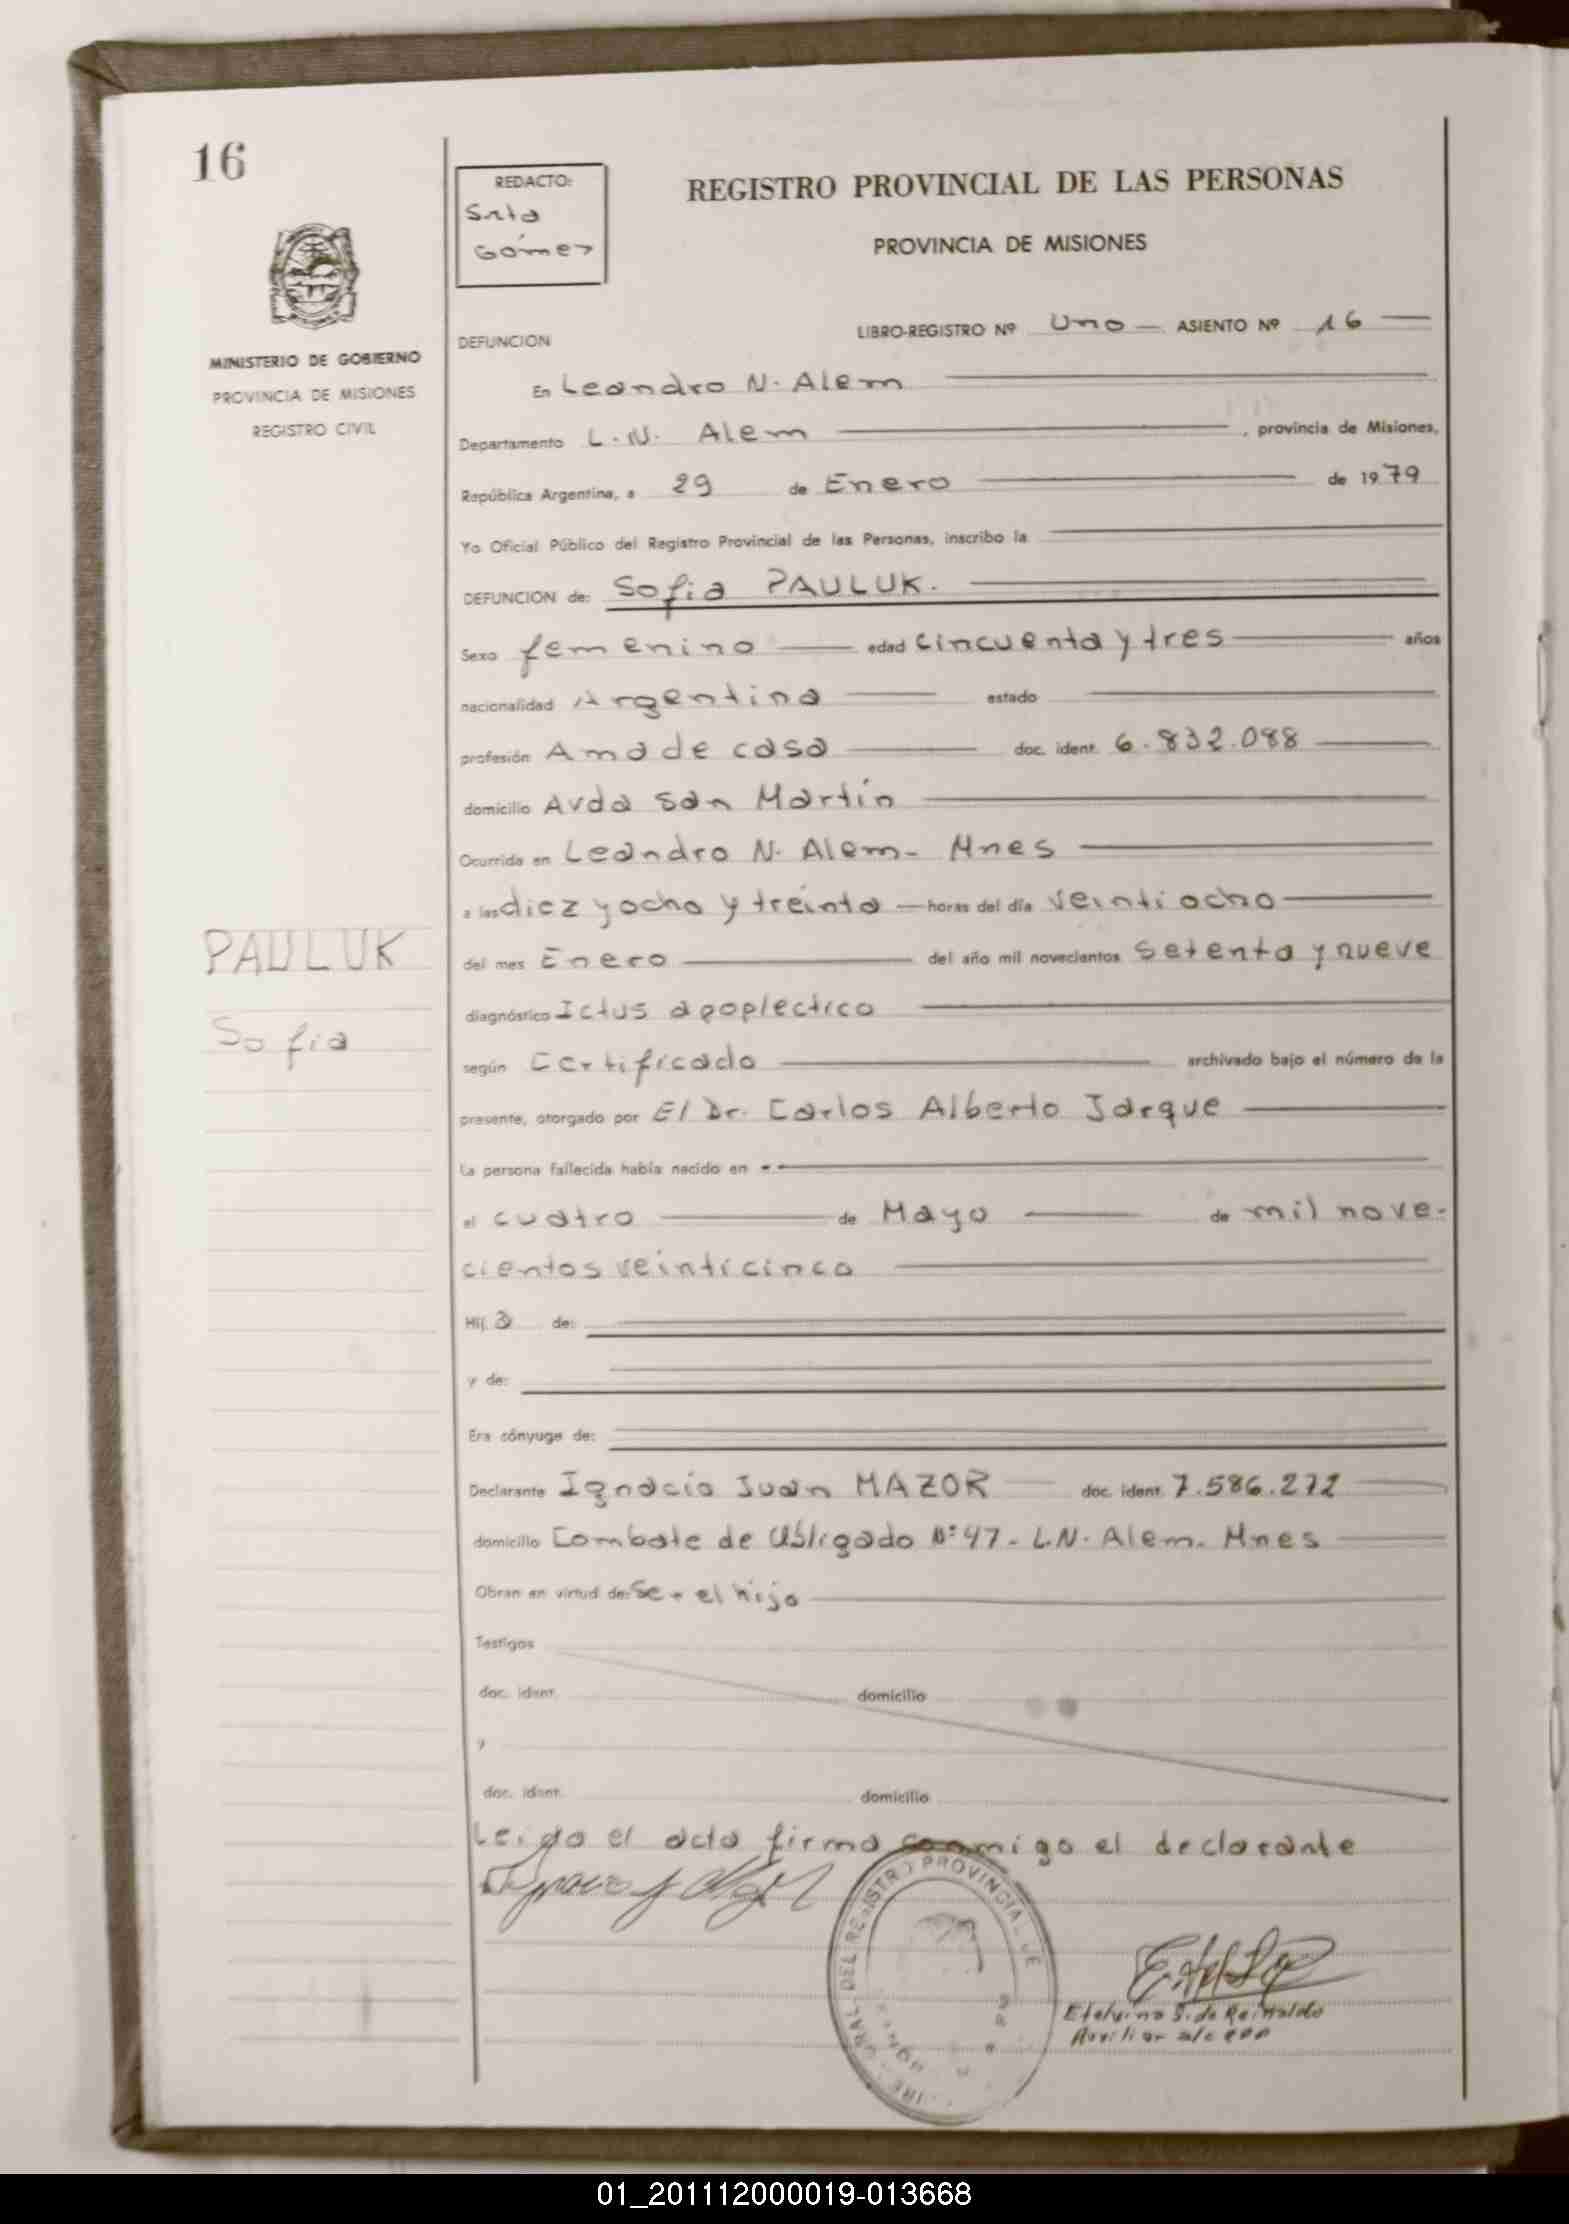 16
MINISTERIO DE GOBIERNO
PROVINCIA DE MISIONES
REGISTRO CIVIL
PAULUK
Sofia
REDACTO:
Srta
Gómez
REGISTRO PROVINCIAL DE LAS PERSONAS
PROVINCIA DE MISIONES
DEFUNCION
LIBRO-REGISTRO Nº Uno ASIENTO Nº 16
En Leandro N. Alem
Departamento L. N. Alem , provincia de Misiones,
República Argentina, a 29 de Enero de 1979
Yo Oficial Público del Registro Provincial de las Personas, inscribo la
DEFUNCION de: Sofia PAULUK.
Sexo femenino edad cincuenta y tres años
nacionalidad Argentina estado
profesión Ama de casa doc. ident. 6.832.088
domicilio Avda San Martín
Ocurrida en Leandro N. Alem- Mnes
a las diez y ocho y treinta horas del día veintiocho
del mes Enero del año mil novecientos setenta y nueve
diagnóstico Ictus apoplectico
según Certificado archivado bajo el número de la
presente, otorgado por El Dr. Carlos Alberto Jarque
La persona fallecida había nacido en
el cuatro de Mayo de mil nove-
cientos veinticinco
Hij. a de:
y de:
Era cónyuge de:
Declarante Ignacio Juan MAZOR doc. ident. 7.586.272
domicilio Combate de Obligado Nº 47- L.N. Alem- Mnes
Obran en virtud de: Ser el hijo
Testigos
doc. ident. domicilio
y
doc. ident. domicilio
Leido el acta firma conmigo el declarante
DEL REGISTRO PROVINCIAL DE
Etelvina S. de Reinaldo
Auxiliar
01_201112000019-013668